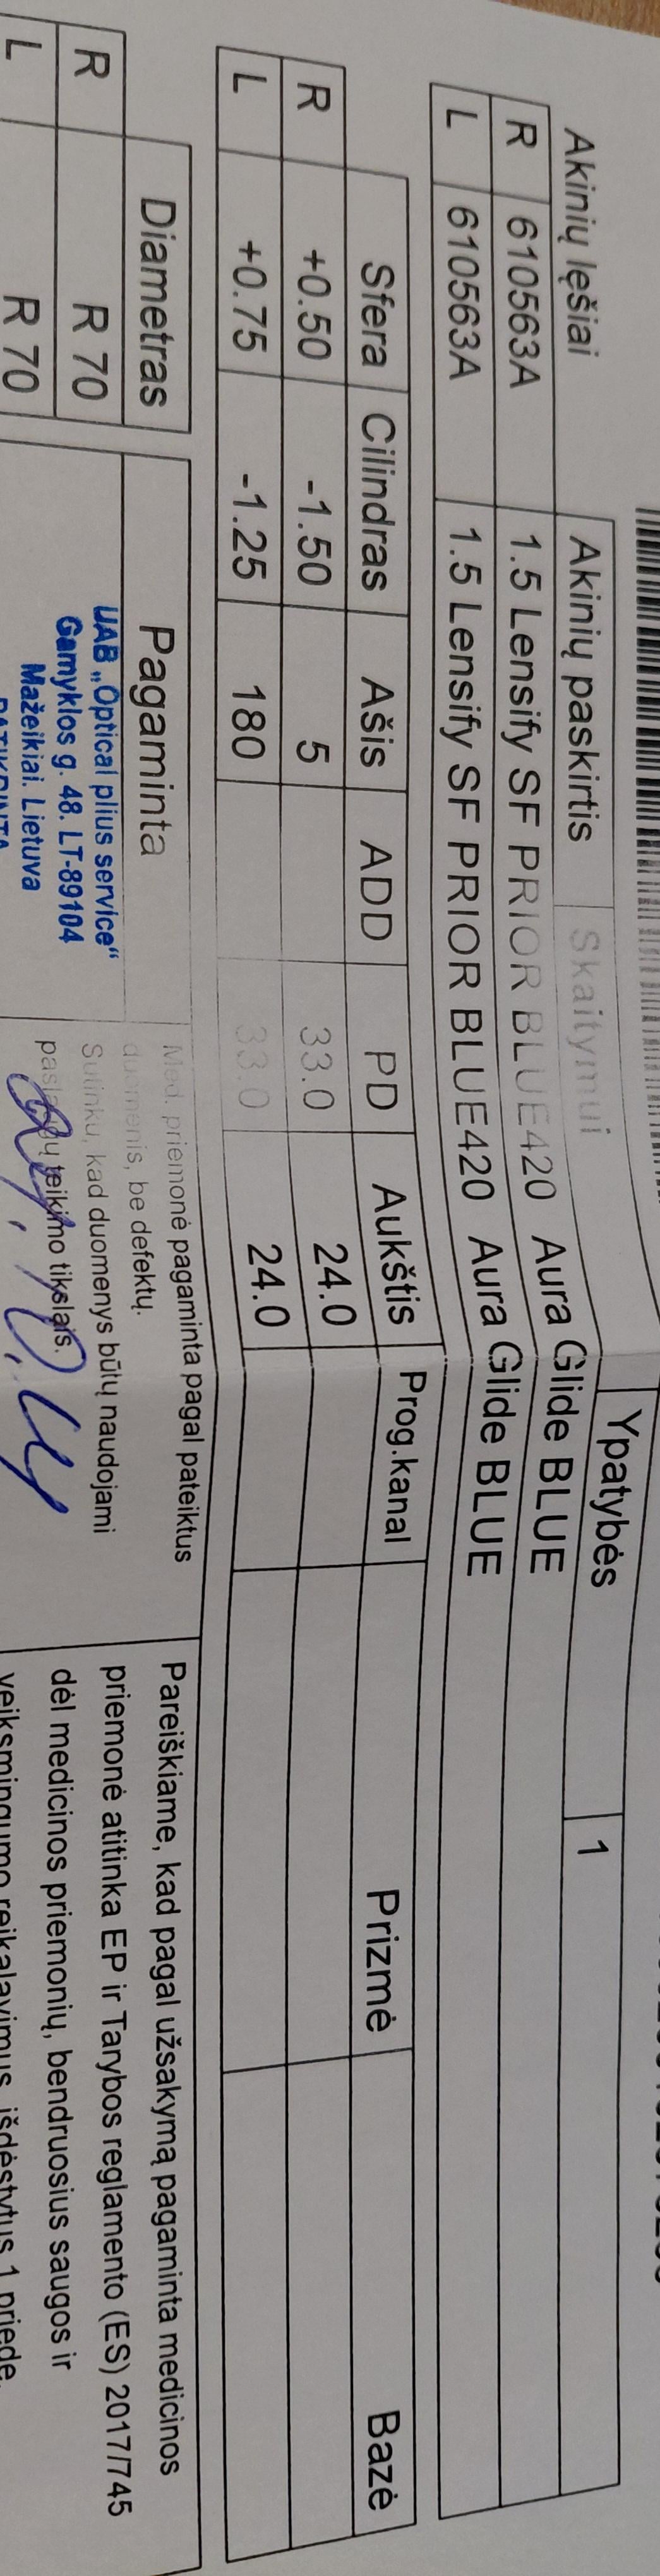 Akinių lęšiai
Akinių paskirtis Skaitymui Ypatybės 1
R 610563A 1.5 Lensify SF PRIOR BLUE420 Aura Glide BLUE
L 610563A 1.5 Lensify SF PRIOR BLUE420 Aura Glide BLUE
Sfera Cilindras Ašis ADD PD Aukštis Prog.kanal Prizmė Bazė
R +0.50 -1.50 5 33.0 24.0
L +0.75 -1.25 180 33.0 24.0
Diametras
R R 70
L R 70
Pagaminta
UAB „Optical plius service“
Gamyklos g. 48. LT-89104
Mažeikiai. Lietuva
PATIKRINTA
Med. priemonė pagaminta pagal pateiktus
duomenis, be defektų.
Sutinku, kad duomenys būtų naudojami
paslaugų teikimo tikslais.
Pareiškiame, kad pagal užsakymą pagaminta medicinos
priemonė atitinka EP ir Tarybos reglamento (ES) 2017/745
dėl medicinos priemonių, bendruosius saugos ir
veiksmingumo reikalavimus, išdėstytus 1 priede.